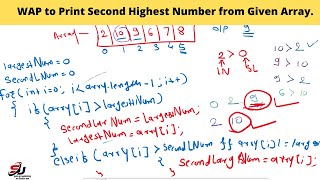 WAP to Print Second Highest Number from Given Array.
Array → 2 10 9 6 7 8
0 1 2 3 4 5
O/P 9
largestNum=0
SecondLNum=0
for(int i=0; i<array.length-1; i++)
{ if(array[i]>largestNum)
{ SecondLarNum = largestNum;
largestNum = array[i];
}
else if (array[i]>SecondLNum && array[i]!=larges
{ SecondLargNum = array[i];
}
2 > 0
LN SL
10 > 2
9 > 2
6 > 10
0 2 9
2 10